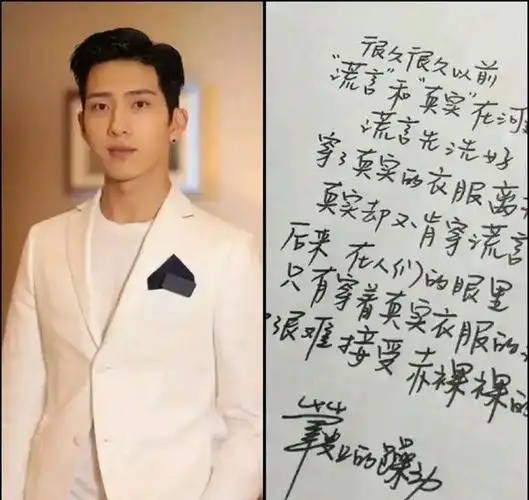 很久很久以前
“谎言”和“真实”在河
谎言先洗好
穿了真实的衣服离
真实却不肯穿谎言
后来 在人们的眼里
只有穿着真实衣服的
很难接受赤裸裸的
的躁动